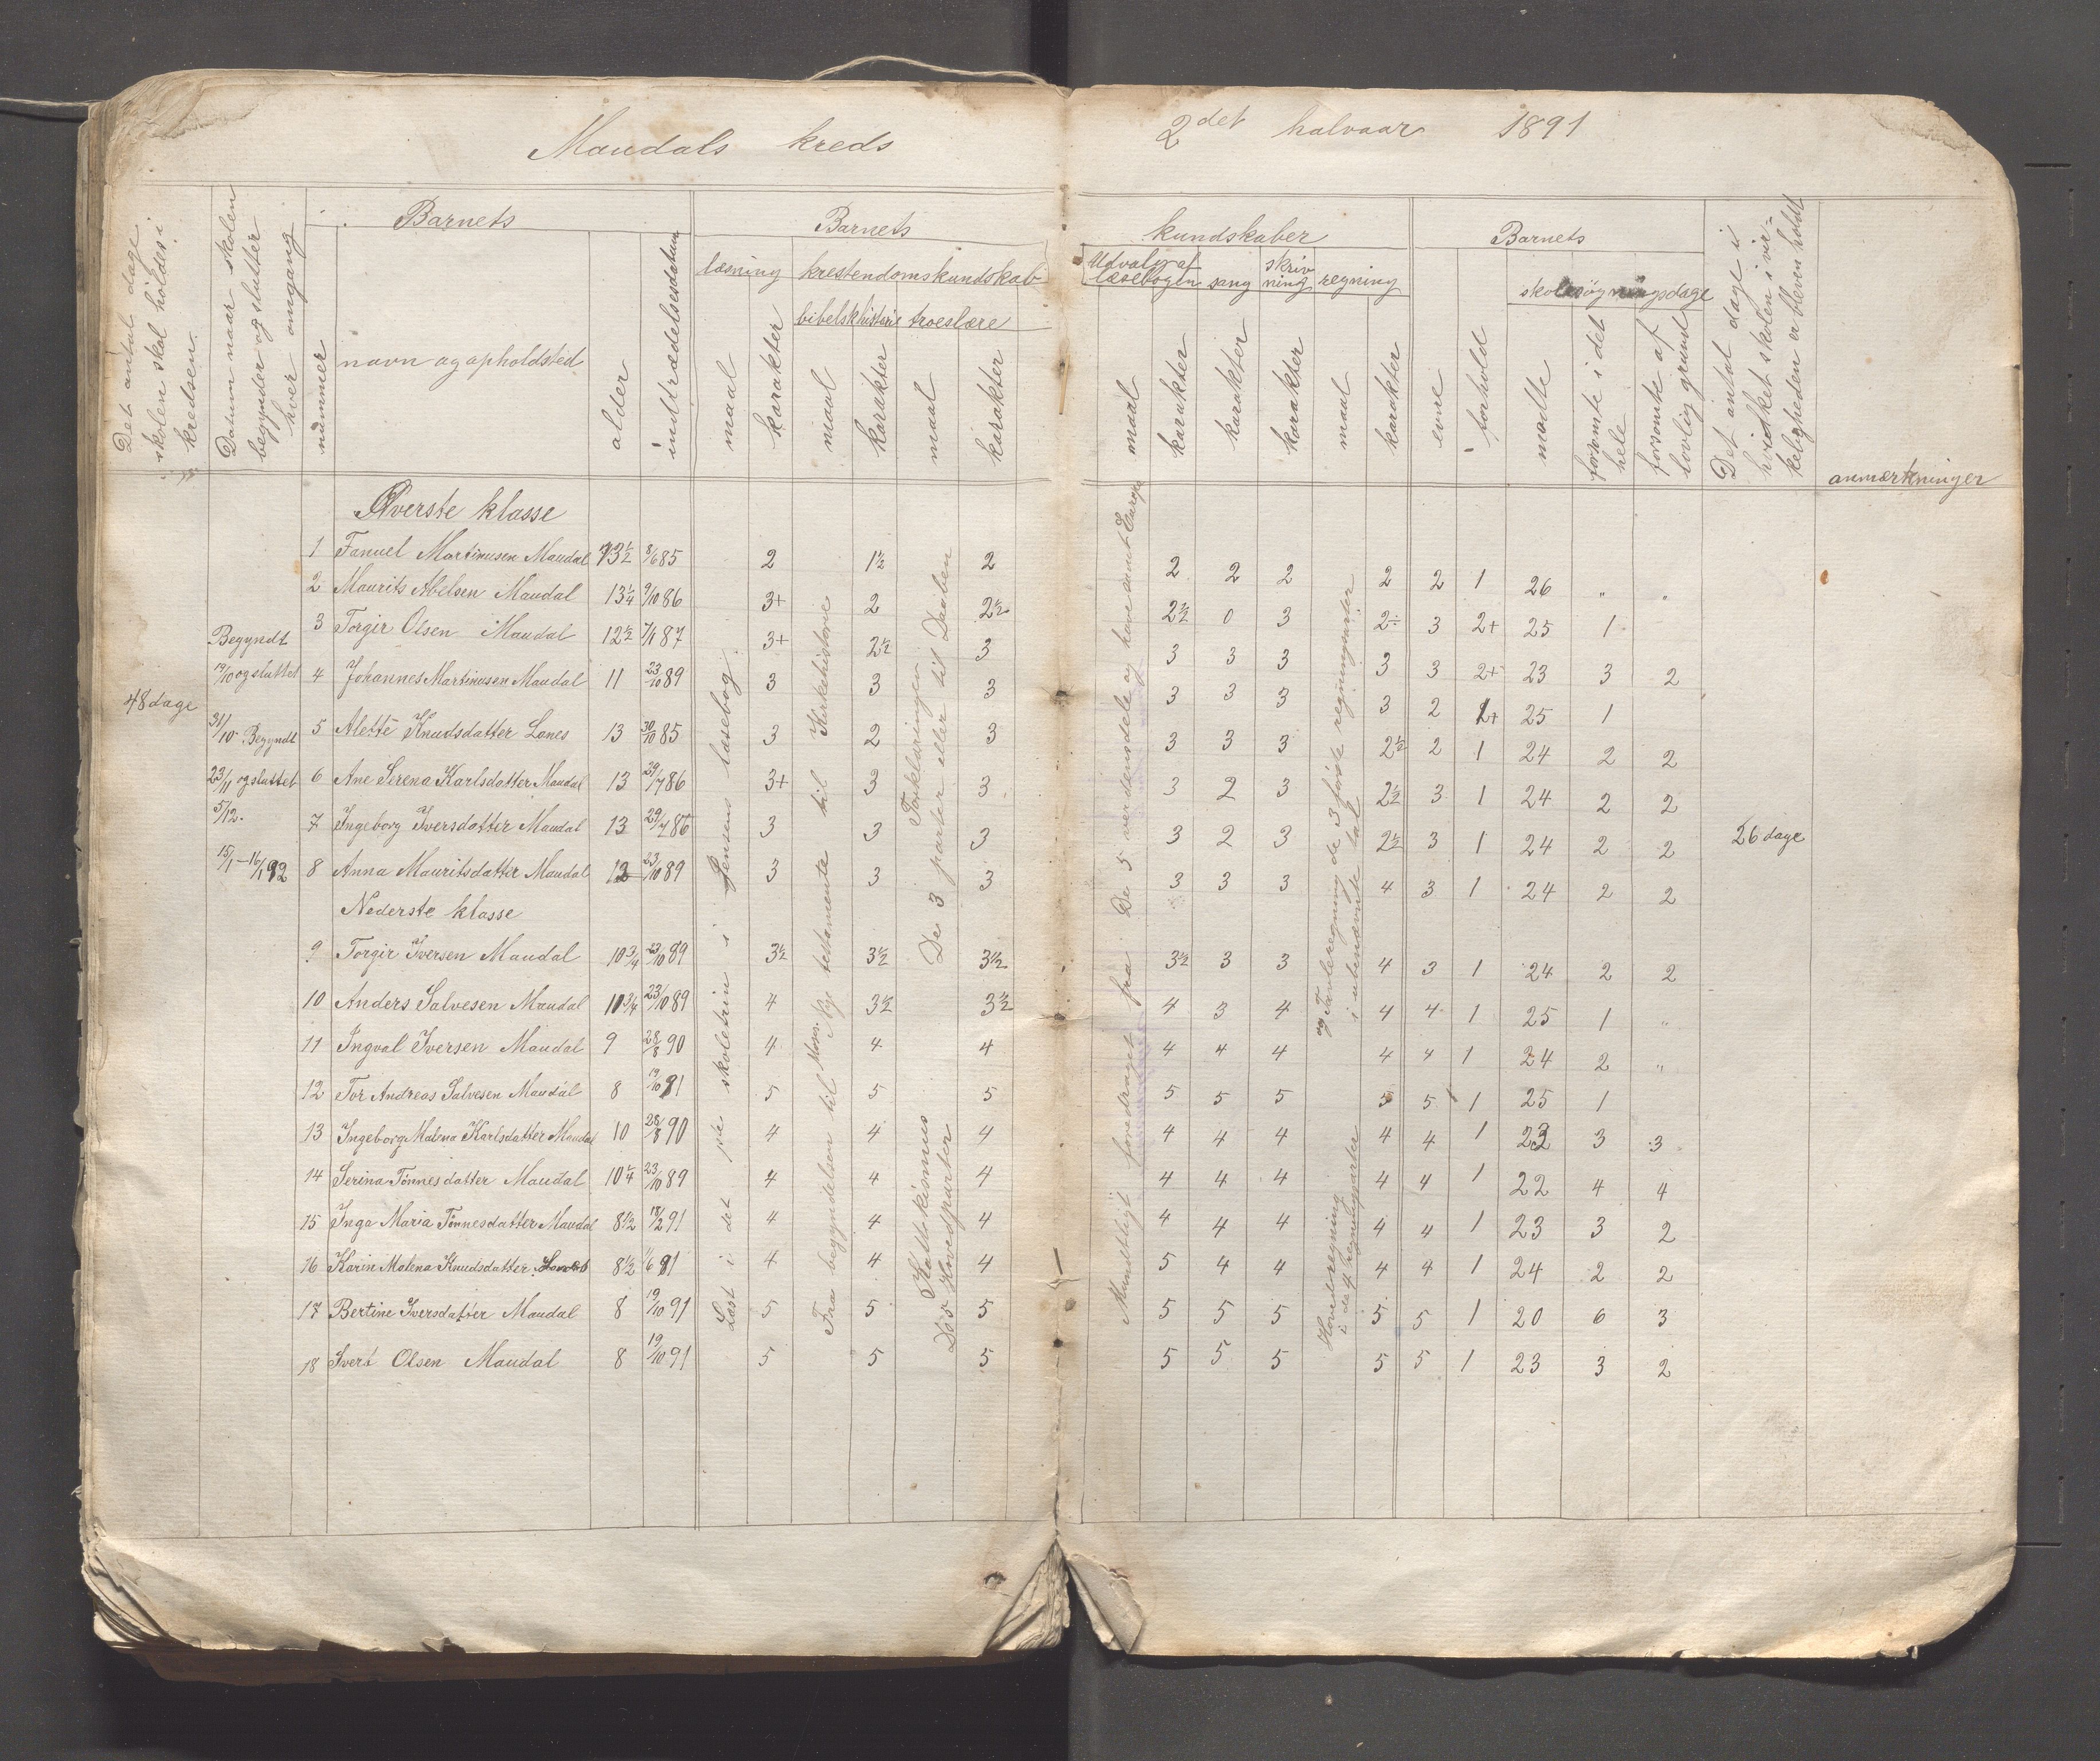 Maudals kreds
2det halvaar 1891
Det antal dage skolen skal holdes i kredsen.
Datum naar skolen begynder og slutter hver omgang
Barnets
nummer
navn og opholdsted
alder
indtrædelsesdatum
Barnets
læsning
krestendomskundskab
bibelskhistorie
troeslære
maal
karakter
maal
karakter
maal
karakter
kundskaber
Udvalg af læsebogen
sang
skrivning
regning
maal
karakter
karakter
karakter
maal
karakter
Barnets
evne
forhold
skolesøgningsdage
mødte
forsømte i det hele
forsømte af lovlig grund
Det antal dage i hvilket skolen i virkeligheden er bleven holdt
anmærkninger
48 dage
Begyndt
19/10 og sluttet
31/10. Begyndt
23/11 og sluttet
5/12.
15/1 – 16/1 92
Øverste klasse
1 Fanuel Martinusen Maudal 13½ 8/6 85 2 1½ 2 2 2 2 2 2 1 26 " "
2 Maurits Abelsen Maudal 13¼ 9/10 86 3+ 2 2½ 2½ 0 3 2÷ 3 2+ 25 1
3 Torgir Olsen Maudal 12½ 7/1 87 3+ 2½ 3 3 3 3 3 3 2+ 23 3 2
4 Johannes Martinusen Maudal 11 23/10 89 3 3 3 3 3 3 3 2 2+ 25 1
5 Alette Knudsdatter Lones 13 30/10 85 3 2 3 3 3 3 2½ 2 1 24 2 2
6 Ane Serena Karlsdatter Maudal 13 29/7 86 3+ 3 3 3 2 3 2½ 3 1 24 2 2
7 Ingeborg Iversdatter Maudal 13 29/7 86 3 3 3 3 2 3 2½ 3 1 24 2 2 26 dage
8 Anna Mauritsdatter Maudal 12 23/10 89 3 3 3 3 3 3 4 3 1 24 2 2
Nederste klasse
9 Torgir Iversen Maudal 10¾ 23/10 89 3½ 3½ 3½ 3½ 3 3 4 3 1 24 2 2
10 Anders Salvesen Maudal 10¾ 23/10 89 4 3½ 3½ 4 3 4 4 4 1 25 1 "
11 Ingval Iversen Maudal 9 28/8 90 4 4 4 4 4 4 4 4 1 24 2 "
12 Tor Andreas Salvesen Maudal 8 19/10 91 5 5 5 5 5 5 5 5 1 25 1
13 Ingeborg Malena Karlsdatter Maudal 10 28/8 90 4 4 4 4 4 4 4 4 1 23 3 3
14 Serina Tønnesdatter Maudal 10¼ 23/10 89 4 4 4 4 4 4 4 4 1 22 4 4
15 Inga Maria Tønnesdatter Maudal 8½ 18/2 91 4 4 4 4 4 4 4 4 1 23 3 2
16 Karin Malena Knudsdatter 8½ 1/6 91 4 4 4 5 4 4 4 4 1 24 2 2
17 Bertine Iversdatter Maudal 8 19/10 91 5 5 5 5 5 5 5 5 1 20 6 3
18 Ivert Olsen Maudal 8 19/10 91 5 5 5 5 5 5 5 5 1 23 3 2
Læst i det skoletrin i Jensens læsebog
Fra begyndelsen til Nye testamente til Kirkehistorie
Forklaringen
De 3 parter eller til Daaben
Katekismus
De 5 Hovedparter
Mundtligt foredraget fra De 5 verdensdele og havedannet Europa
og Tavleregning de 3 første regningsarter
i ubenævnte tal
Hovedregning
i de 4 regningsarter